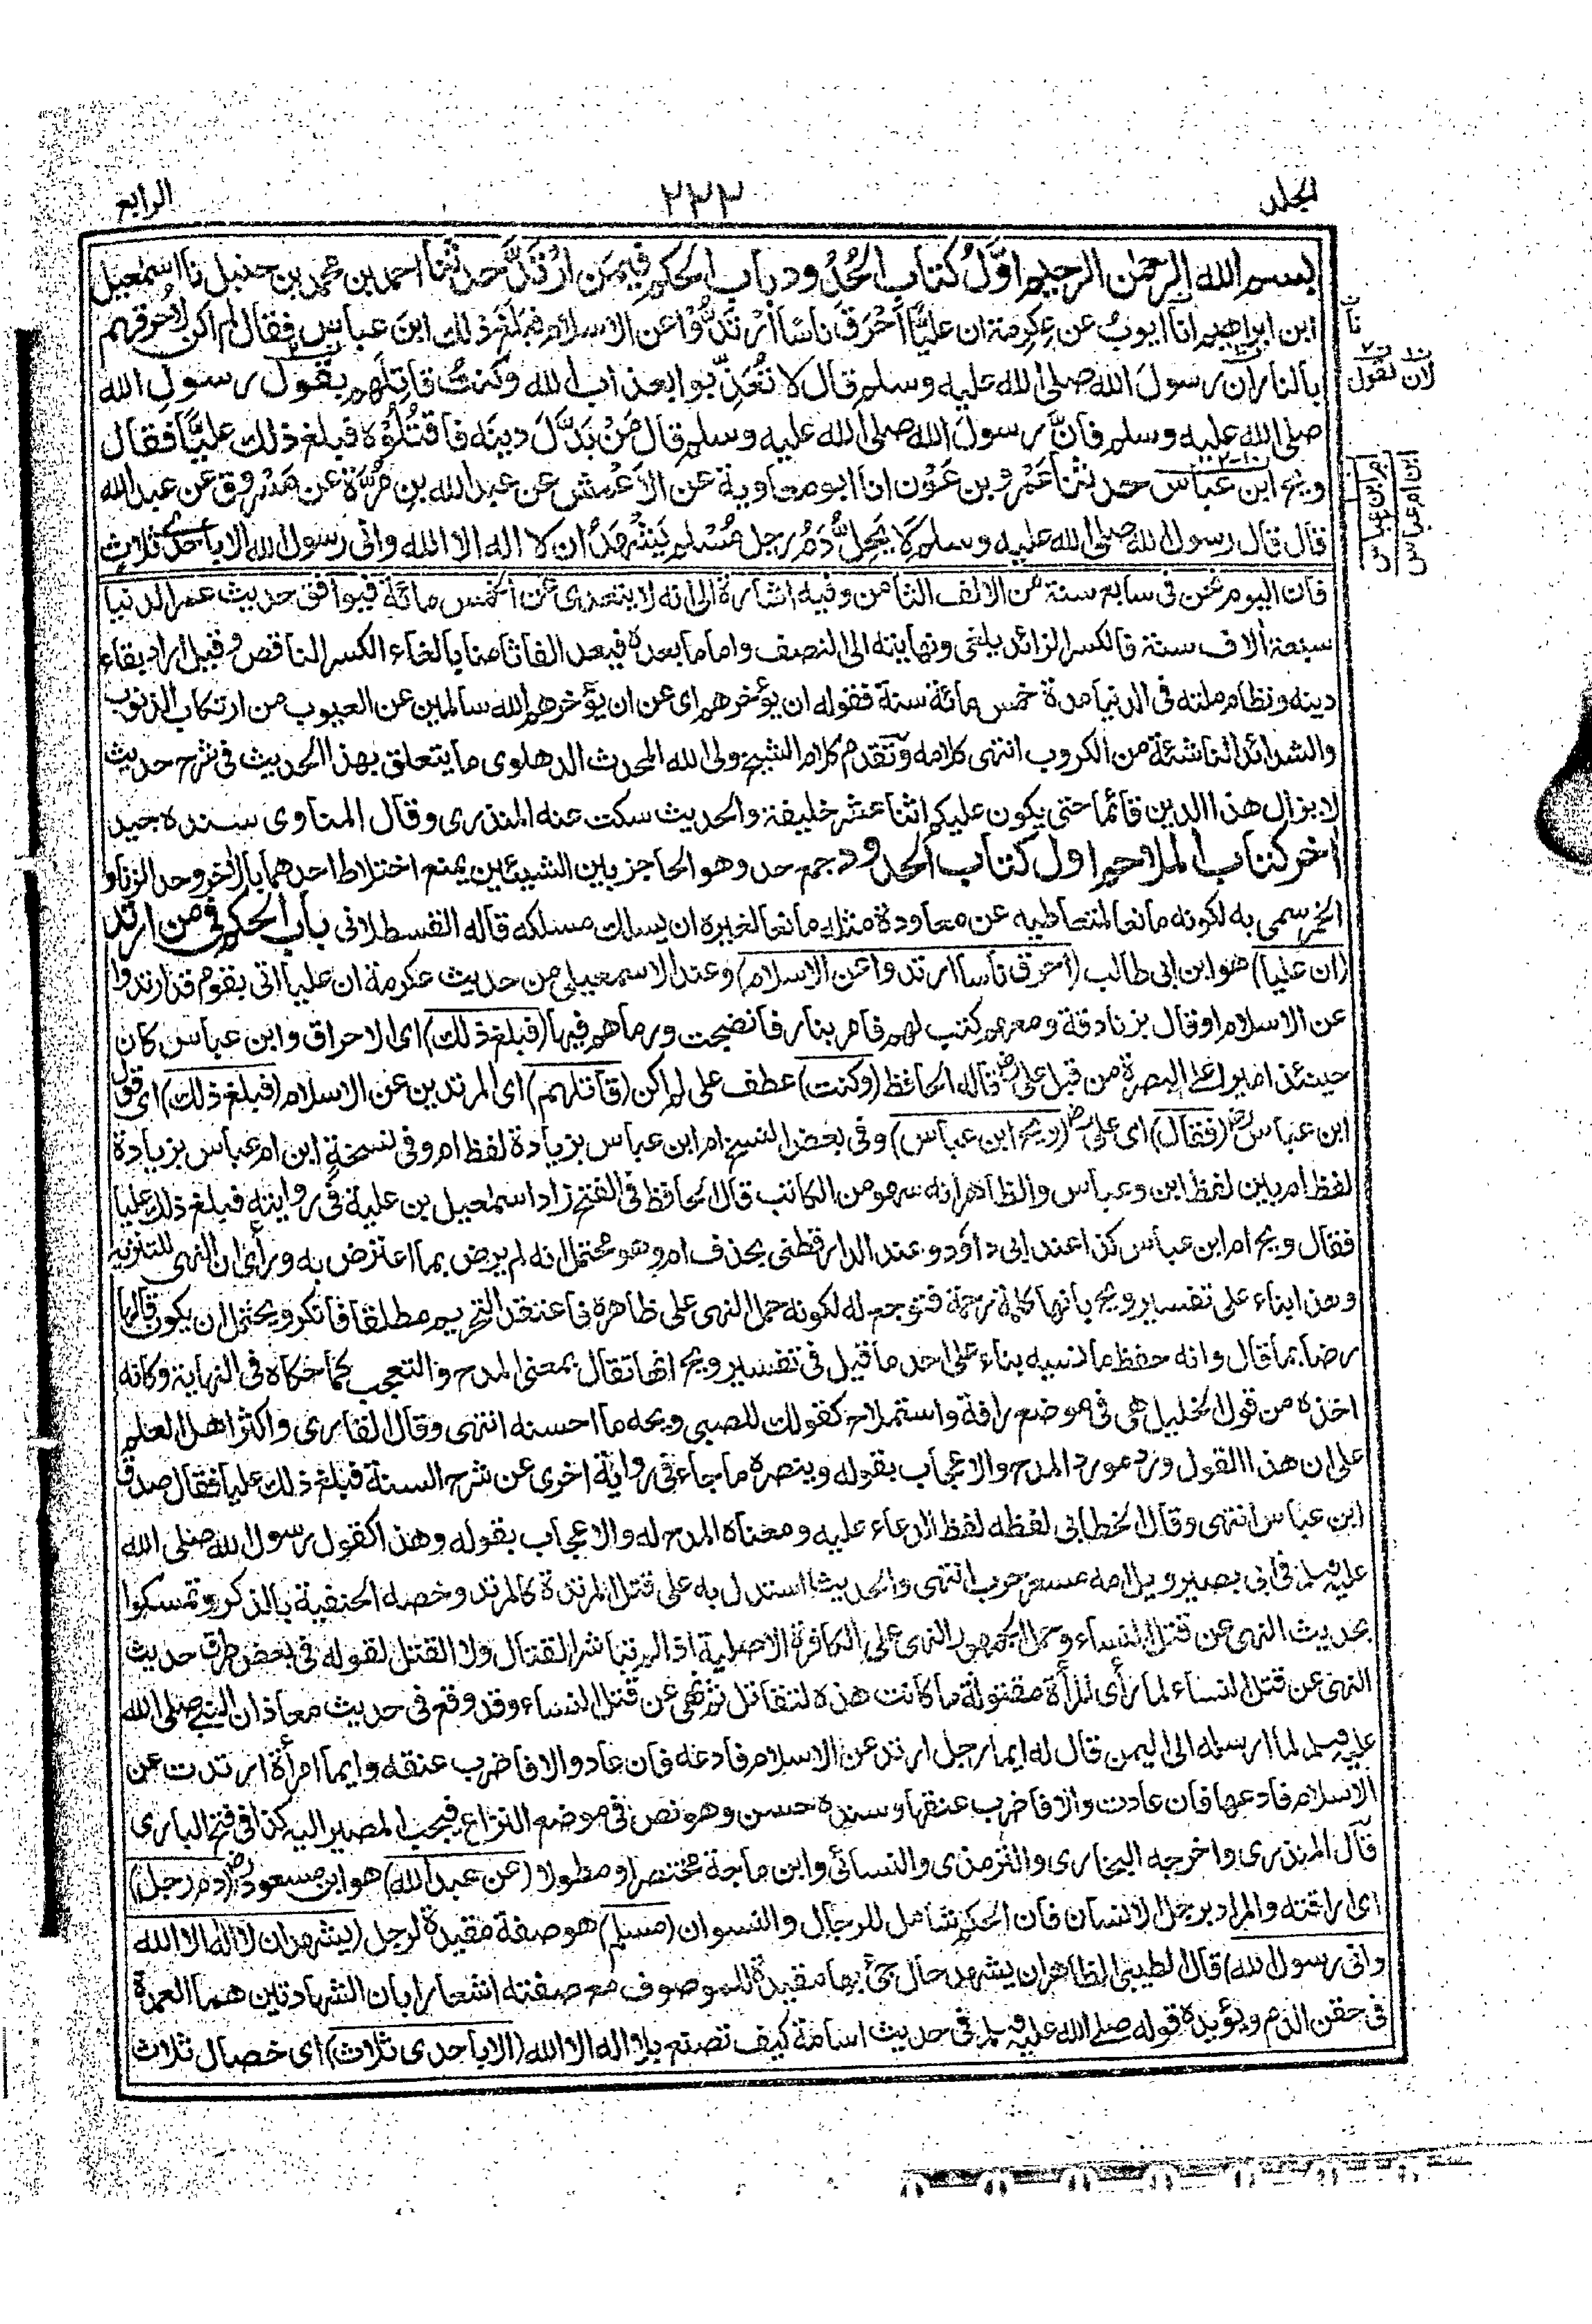 المجلد
٢٢٣
الرابع
بسم الله الرحمن الرحيم اوّل كتاب الحُدُود باب الحكم فيمن ارْتَدَّ حدثنا احمد بن محمد بن حنبل نا اسمٰعيل
ابن ابراهيم انا ايوبُ عن عِكرِمة ان عليًّا اَحْرَقَ ناسًا ارْتَدُّوْا عن الاسلام فبَلَغَ ذلك ابنَ عباسٍ فقال لم اكن لاُحرقهم
بالنار ان رسولَ الله صلى الله عليه وسلم قال لا تُعَذِّبوا بعذاب الله وكنتُ قاتِلَهم بقول رسولِ الله
صلى الله عليه وسلم فانَّ رسولَ الله صلى الله عليه وسلم قال مَنْ بَدَّلَ دينَه فاقتُلُوْه فبلغ ذلك عليًّا فقال
ويح ابن عباس حدثنا عَمْرُو بن عَوْن انا ابو معاوية عن الاَعْمش عن عبد الله بن مُرَّة عن مَسْروق عن عبد الله
قال قال رسول الله صلى الله عليه وسلم لا يَحِلُّ دَمُ رجل مُسْلم يَشْهَدُ ان لا اله الا الله وانى رسول الله الا باحدى ثلاث
نا
لان
لقول
ام ابن عباس
ابن ام عباس
فان اليوم نحن فى سابع سنة من الالف الثامن وفيه اشارة الى انه لا يتعدى عن الخمس مائة فيوافق حديث عمر الدنيا
سبعة اٰلاف سنة فالكسر الزائد يلغى ونهايته الى النصف واما ما بعده فيعد الفا ثامنا بالغاء الكسر الناقص وقيل اراد بقاء
دينه ونظام ملته فى الدنيا مدة خمس مائة سنة فقوله ان يؤخرهم اى عن ان يؤخرهم الله سالمين عن العيوب من ارتكاب الذنوب
والشدائد الناشئة من الكروب انتهى كلامه وتقدم كلام الشيخ ولى الله المحدث الدهلوى ما يتعلق بهذا الحديث فى شرح حديث
لا يزال هذا الدين قائما حتى يكون عليكم اثنا عشر خليفة والحديث سكت عنه المنذرى وقال المناوى سنده جيد
اٰخر كتاب الملاحم اول كتاب الحدود جمع حد وهو الحاجز بين الشيئين يمنع اختلاط احدهما بالاٰخر وحد الزنا و
الخمر سمى به لكونه مانعا لمتعاطيه عن معاودة مثله مانعا لغيره ان يسلك مسلكه قاله القسطلانى باب الحكم فى من ارتد
(ان عليا) هو ابن ابى طالب (احرق ناسا ارتدوا عن الاسلام) وعند الاسمعيلى من حديث عكرمة ان عليا اتى بقوم قد ارتدوا
عن الاسلام او قال بزنادقة ومعهم كتب لهم فامر بنار فانضجت ورماهم فيها (فبلغ ذلك) اى الاحراق وابن عباس كان
حينئذ اميرا على البصرة من قبل على رض قاله الحافظ (وكنت) عطف على لم اكن (قاتلهم) اى المرتدين عن الاسلام (فبلغ ذلك) اى قول
ابن عباس رض (فقال) اى على رض (ويح ابن عباس) وفى بعض النسخ ام ابن عباس بزيادة لفظ ام وفى نسخة ابن ام عباس بزيادة
لفظ ام بين لفظ ابن وعباس والظاهر انه سهو من الكاتب قال الحافظ فى الفتح زاد اسمعيل بن علية فى روايته فبلغ ذلك عليا
فقال ويح ام ابن عباس كذا عند ابى داؤد وعند الدارقطنى بحذف ام وهو محتمل انه لم يرض بما اعترض به وراى ان النهى للتنزيه
وهذا بناء على تفسير ويح بانها كلمة رحمة فتوجع له لكونه حمل النهى على ظاهره فاعتقد التحريم مطلقا فانكر ويحتمل ان يكون قالها
رضا بما قال وانه حفظ ما نسيه بناء على احد ما قيل فى تفسير ويح انها تقال بمعنى المدح والتعجب كما حكاه فى النهاية وكانه
اخذه من قول الخليل هى فى موضع رافة واستملاح كقولك للصبى ويحه ما احسنه انتهى وقال القارى واكثر اهل العلم
على ان هذا القول ورد مورد المدح والاعجاب بقوله وينصره ما جاء فى رواية اخرى عن شرح السنة فبلغ ذلك عليا فقال صدق
ابن عباس انتهى وقال الخطابى لفظه لفظ الدعاء عليه ومعناه المدح له والاعجاب بقوله وهذا كقول رسول الله صلى الله
عليه وسلم فى ابى بصير ويل امه مسعر حرب انتهى والحديث استدل به على قتل المرتدة كالمرتد وخصه الحنفية بالذكر وتمسكوا
بحديث النهى عن قتل النساء وحمل الجمهور النهى على الكافرة الاصلية اذا لم تباشر القتال ولا القتل لقوله فى بعض طرق حديث
النهى عن قتل النساء لما رأى المرأة مقتولة ما كانت هذه لتقاتل ثم نهى عن قتل النساء وقد وقع فى حديث معاذ ان النبى صلى الله
عليه وسلم لما ارسله الى اليمن قال له ايما رجل ارتد عن الاسلام فادعه فان عاد والا فاضرب عنقه وايما امرأة ارتدت عن
الاسلام فادعها فان عادت والا فاضرب عنقها وسنده حسن وهو نص فى موضع النزاع فيجب المصير اليه كذا فى فتح البارى
قال المنذرى واخرجه البخارى والترمذى والنسائى وابن ماجة مختصرا ومطولا (عن عبد الله) هو ابن مسعود رض (دم رجل)
اى اراقته والمراد برجل الانسان فان الحكم شامل للرجال والنسوان (مسلم) هو صفة مقيدة لرجل (يشهد ان لا اله الا الله
وانى رسول الله) قال الطيبى الظاهر ان يشهد حال جئ بها مقيدة للموصوف مع صفته اشعارا بان الشهادتين هما العمدة
فى حقن الدم ويؤيده قوله صلى الله عليه وسلم فى حديث اسامة كيف تصنع بلا اله الا الله (الا باحدى ثلاث) اى خصال ثلاث